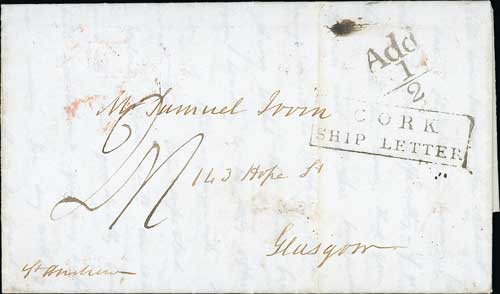 Add
1/2
CORK
SHIP LETTER
Mr Samuel Irvin
143 Hope St
Glasgow